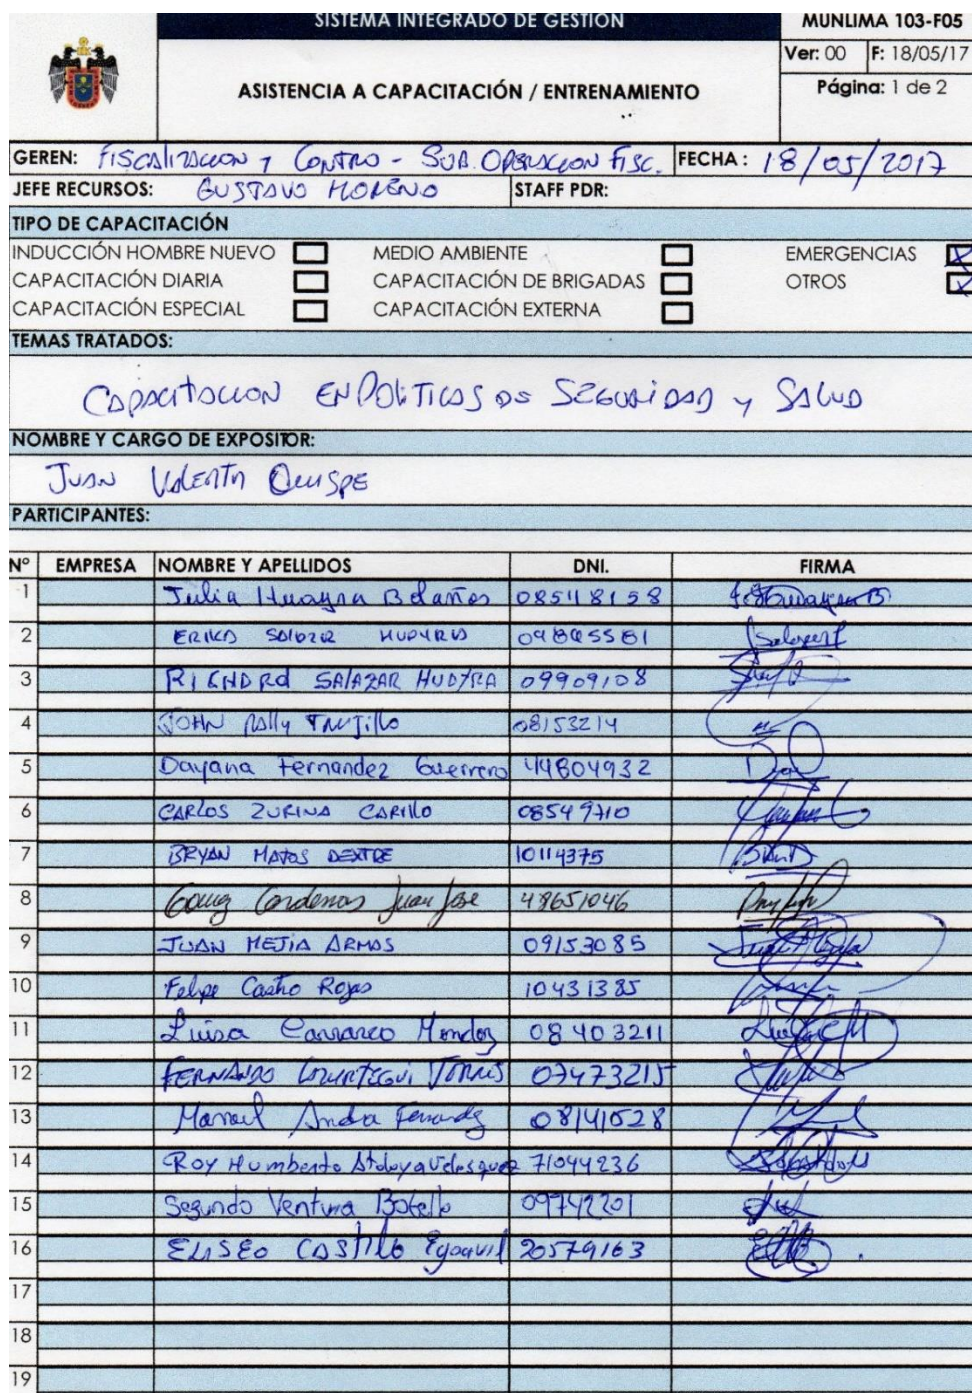 SISTEMA INTEGRADO DE GESTIÓN
MUNLIMA 103-F05
Ver: 00 F: 18/05/17
ASISTENCIA A CAPACITACIÓN / ENTRENAMIENTO
Página: 1 de 2
GEREN: FISCALIZACION Y CONTRO - SUB. OPERACION FISC. FECHA: 18/05/2017
JEFE RECURSOS: GUSTAVO MORENO STAFF PDR:
TIPO DE CAPACITACIÓN
INDUCCIÓN HOMBRE NUEVO MEDIO AMBIENTE EMERGENCIAS
CAPACITACIÓN DIARIA CAPACITACIÓN DE BRIGADAS OTROS
CAPACITACIÓN ESPECIAL CAPACITACIÓN EXTERNA
TEMAS TRATADOS:
CAPACITACION EN POLITICAS DE SEGURIDAD Y SALUD
NOMBRE Y CARGO DE EXPOSITOR:
JUAN Quispe
PARTICIPANTES:
N° EMPRESA NOMBRE Y APELLIDOS DNI. FIRMA
1 Julia Huayra Bolaños 085118158
2 ERIKA SALAZAR HUAYRA
3 RICHARD SALAZAR HUAYRA 09909108
4 JOHN Trujillo 08153214
5 Dayana Fernandez Guerrero 44804932
6 CARLOS ZURINA CARILLO 08549710
7 BRYAN MATOS DEXTRE 10114375
8 Gomez Cardenas Juan Jose 48651046
9 JUAN MEJIA ARMAS 09153085
10 Felipe Castro Rojas 10431385
11 Luisa Carrasco 08403211
12 FERNANDO TORRES 07473215
13 Manuel 08141528
14 Roy Humberto Atalaya Velasquez 71044236
15 Segundo Ventura Botello 09742201
16 ELISEO CASTILLO 20579163
17
18
19